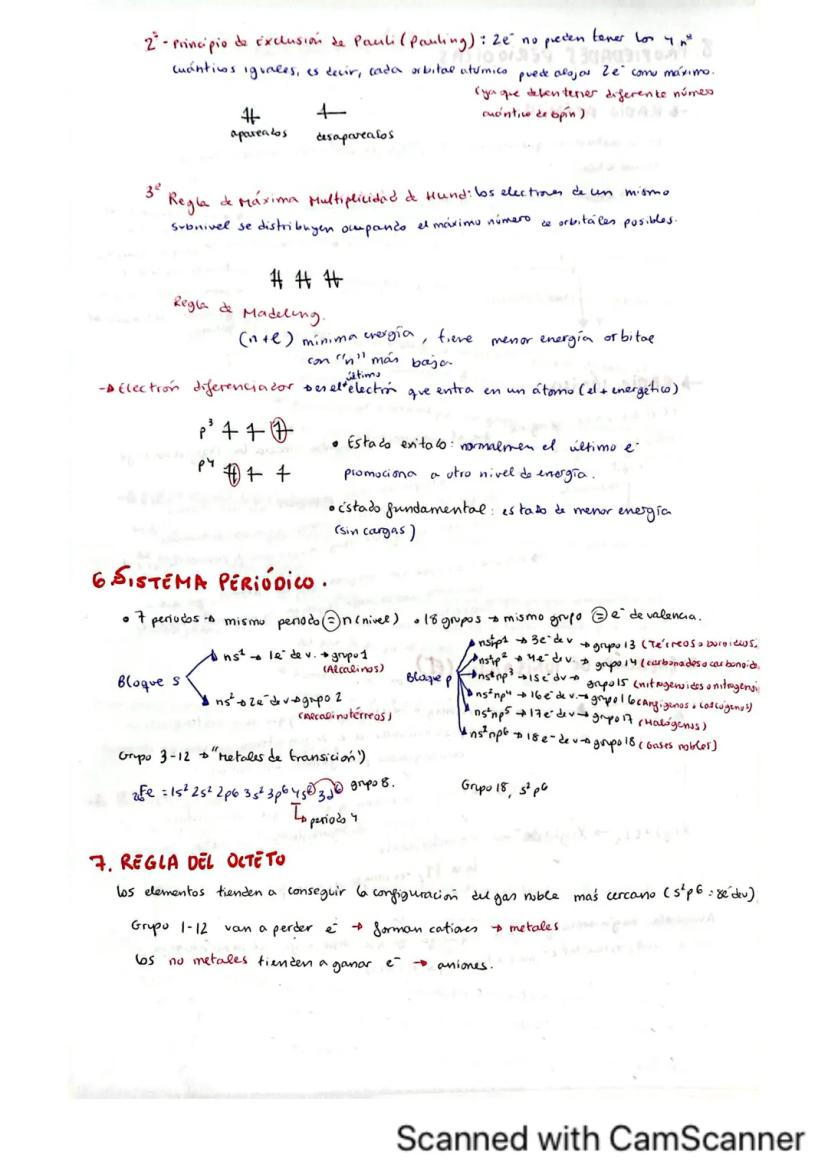 2º - Principio de exclusión de Pauli (Pauling) : 2e⁻ no pueden tener los 4 nº
cuánticos iguales, es decir, cada orbital atómico puede alojar 2e⁻ como máximo.
(ya que deben tener diferente número
cuántico de spin)
apareados desapareados
3º Regla de Máxima Multiplicidad de Hund: los electrones de un mismo
subnivel se distribuyen ocupando el máximo número de orbitales posibles.
Regla de Madelung.
(n+l) mínima energía, tiene menor energía orbital
con "n" más baja.
→ Electrón diferenciador → es el último electrón que entra en un átomo (el + energético)
p³
• Estado exitado: normalmen el último e⁻
p4
promociona a otro nivel de energía.
• Estado fundamental: estado de menor energía
(sin cargas)
6 SISTEMA PERIÓDICO.
• 7 periodos → mismo periodo = n (nivel) • 18 grupos → mismo grupo = e⁻ de valencia.
Bloque s
ns¹ → 1e⁻ de v. → grupo 1
(Alcalinos)
ns² → 2e⁻ de v → grupo 2
(Alcalinotérreos)
Bloque p
ns²p1 → 3e⁻ de v → grupo 13 (Térreos o boroideos.
ns²np² → 4e⁻ de v. → grupo 14 (carbonados o carbonoid.
ns²np³ → 15e⁻ de v → grupo 15 (nitrogenoides o nitrogenoi
ns²np4 → 16e⁻ de v. → grupo 16 (Anfígenos o calcógenos)
ns²np5 → 17e⁻ de v → grupo 17 (Halógenos)
ns²np6 → 18e⁻ de v → grupo 18 (Gases nobles)
Grupo 3-12 → "Metales de transición")
₂₆Fe = 1s² 2s² 2p6 3s² 3p6 4s² 3d6 grupo 8.
periodo 4
Grupo 18, s²p6
7. REGLA DEL OCTETO
Los elementos tienden a conseguir la configuración del gas noble más cercano (s²p6 : 8e⁻dev)
Grupo 1-12 van a perder e⁻ → forman cationes → metales
Los no metales tienden a ganar e⁻ → aniones.
Scanned with CamScanner